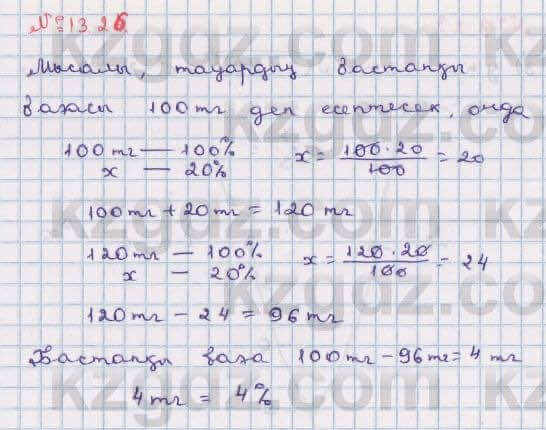 №1326
Мысалы, тауардың бастапқы
бағасы 100 тг деп есептесек, онда
100 тг — 100%
x — 20%
x = 100·20/100 = 20
100 тг + 20 тг = 120 тг
120 тг — 100%
x — 20%
x = 120·20/100 = 24
120 тг - 24 = 96 тг
Бастапқы баға 100 тг - 96 тг = 4 тг
4 тг = 4%
kzgdz.com